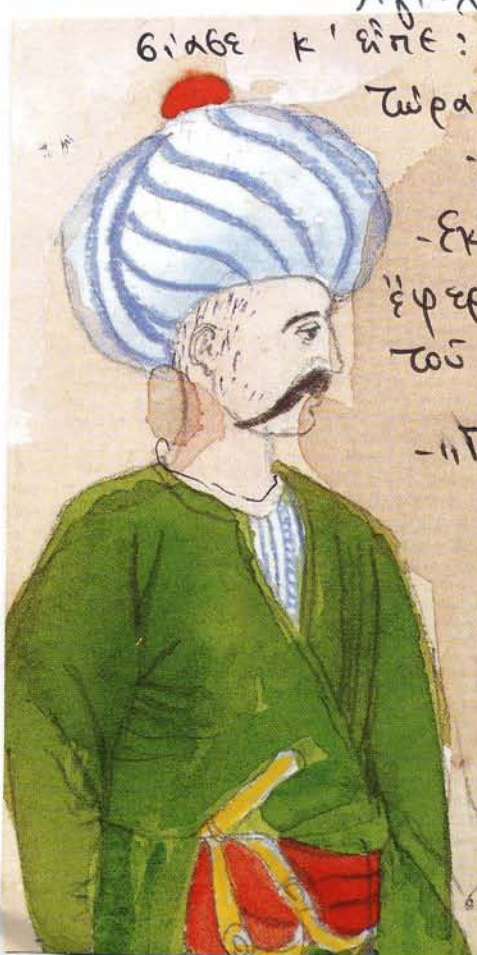 σίασε κ' εἶπε:
Τώρα
-Εκ
ἔφερ
τοῦ
-"Π